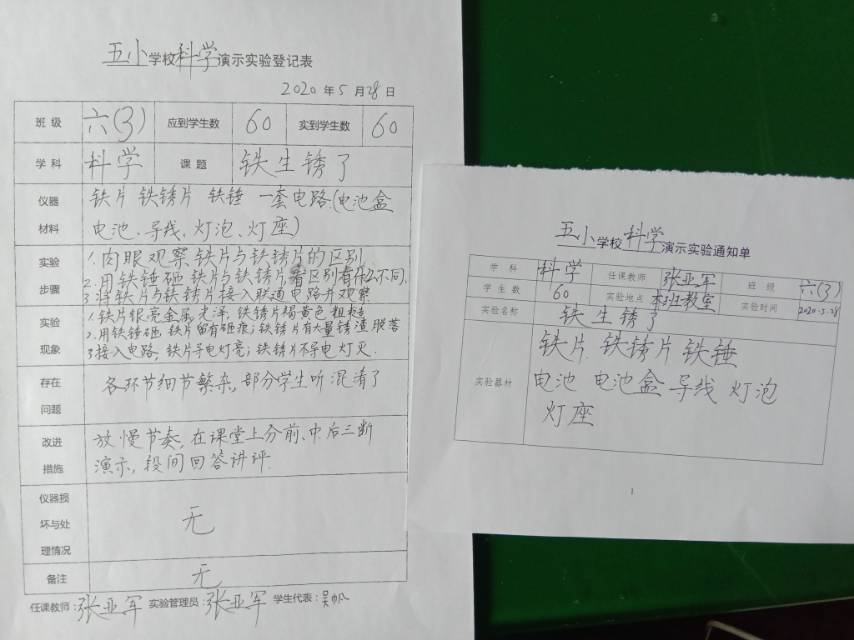 五小学校科学演示实验登记表
2020年5月28日
班级 六(3) 应到学生数 60 实到学生数 60
学科 科学 课题 铁生锈了
仪器材料
铁片 铁锈片 铁锤 一套电路(电池盒
电池、导线、灯泡、灯座)
实验步骤
1.肉眼观察铁片与铁锈片的区别
2.用铁锤砸铁片与铁锈片看区别有什么不同).
3.将铁片与铁锈片接入联通电路片观察
实验现象
1.铁片银亮金属光泽,铁锈片褐黄色粗糙
2.用铁锤砸铁片留有砸痕;铁锈片有大量锈渣脱落
3.接入电路,铁片导电灯亮;铁锈片不导电灯灭.
存在问题
各环节细节繁杂,部分学生听混淆了
改进措施
放慢节奏,在课堂上分前、中、后三断
演示,段间回答讲评.
仪器损坏与处理情况
无
备注 无
任课教师:张亚军 实验管理员:张亚军 学生代表:吴
五小学校科学演示实验通知单
学科 科学 任课教师 张亚军 班级 六(3)
学生数 60 实验地点 本班教室 实验时间 2020.5.28
实验名称 铁生锈了
实验器材
铁片 铁锈片 铁锤
电池 电池盒 导线 灯泡
灯座
1